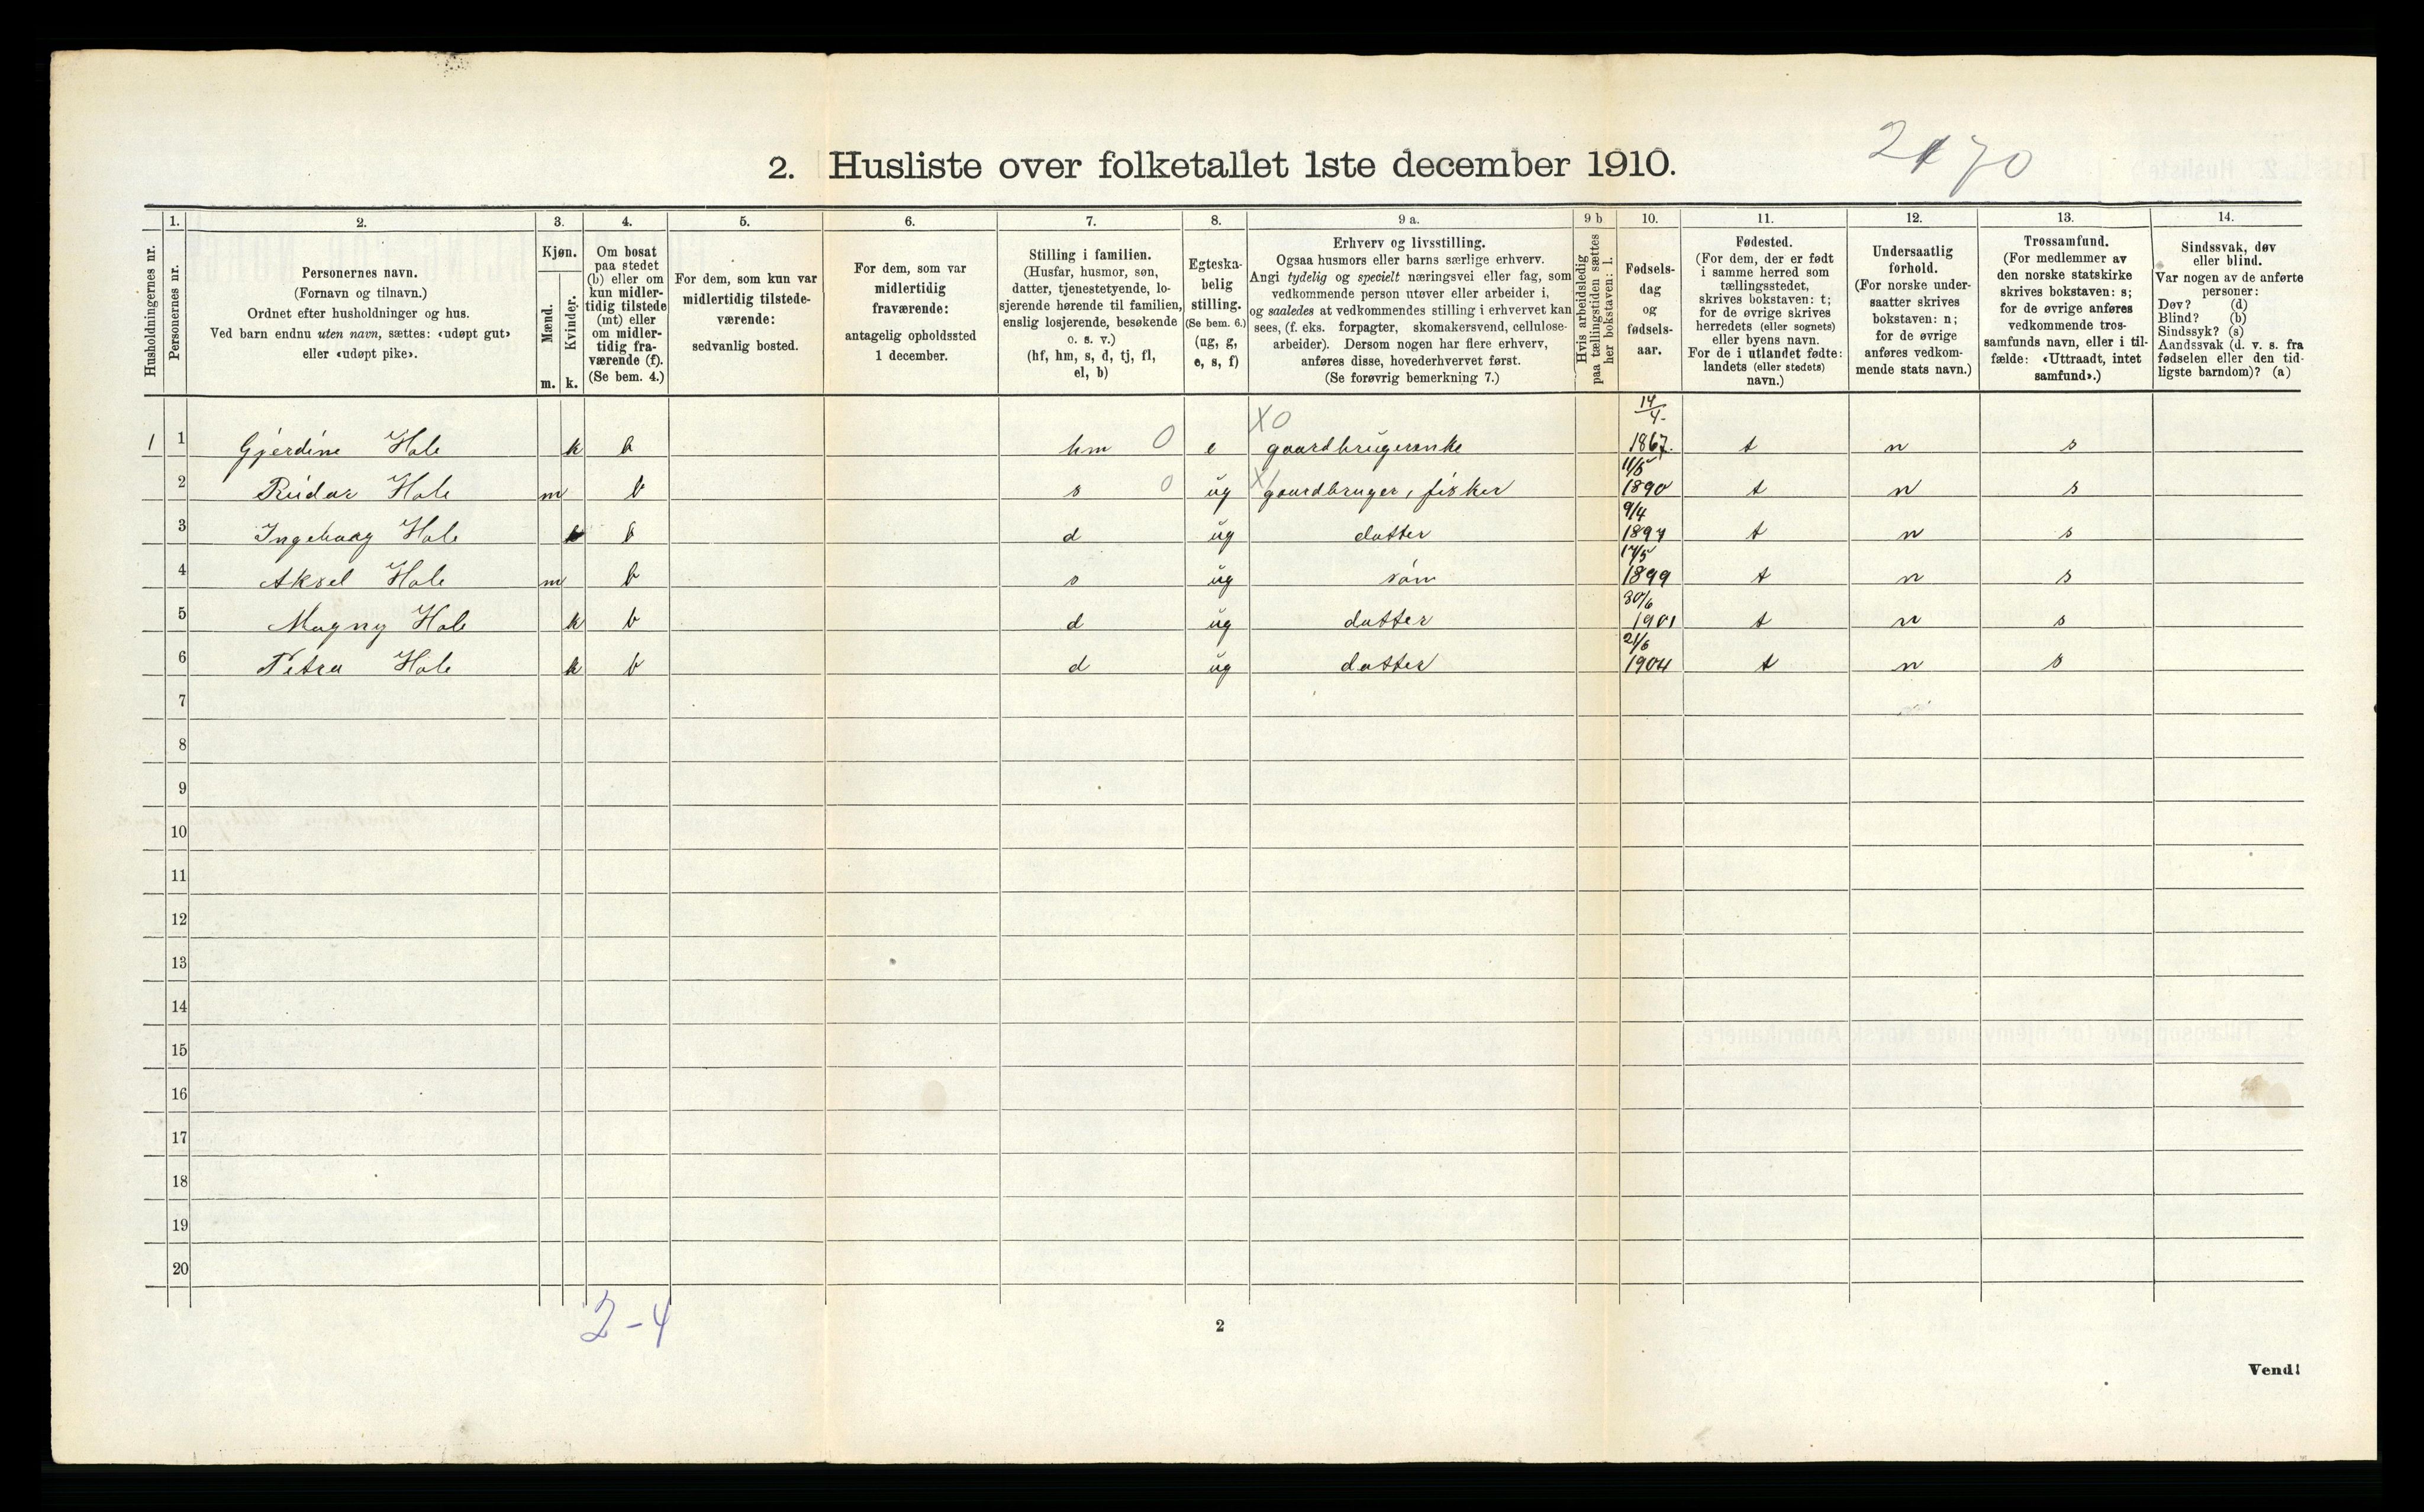 2. Husliste over folketallet 1ste december 1910.
1. 2. 3. 4. 5. 6. 7. 8. 9 a. 9 b 10. 11. 12. 13. 14.
Husholdningernes nr.
Personernes nr.
Personernes navn.
(Fornavn og tilnavn.)
Ordnet efter husholdninger og hus.
Ved barn endnu uten navn, sættes: «udøpt gut»
eller «udøpt pike».
Kjøn.
Mænd.
Kvinder.
m. k.
Om bosat
paa stedet
(b) eller om
kun midler-
tidig tilstede
(mt) eller
om midler-
tidig fra-
værende (f).
(Se bem. 4.)
For dem, som kun var
midlertidig tilstede-
værende:
sedvanlig bosted.
For dem, som var
midlertidig
fraværende:
antagelig opholdssted
1 december.
Stilling i familien.
(Husfar, husmor, søn,
datter, tjenestetyende, lo-
sjerende hørende til familien,
enslig losjerende, besøkende
o. s. v.)
(hf, hm, s, d, tj, fl,
el, b)
Egteska-
belig
stilling.
(Se bem. 6.)
(ug, g,
e, s, f)
Erhverv og livsstilling.
Ogsaa husmors eller barns særlige erhverv.
Angi tydelig og specielt næringsvei eller fag, som
vedkommende person utøver eller arbeider i,
og saaledes at vedkommendes stilling i erhvervet kan
sees, (f. eks. forpagter, skomakersvend, cellulose-
arbeider). Dersom nogen har flere erhverv,
anføres disse, hovederhvervet først.
(Se forøvrig bemerkning 7.)
Hvis arbeidsledig
paa tællingstiden sættes
her bokstaven: l.
Fødsels-
dag
og
fødsels-
aar.
Fødested.
(For dem, der er født
i samme herred som
tællingsstedet,
skrives bokstaven: t;
for de øvrige skrives
herredets (eller sognets)
eller byens navn.
For de i utlandet fødte:
landets (eller stedets)
navn.)
Undersaatlig
forhold.
(For norske under-
saatter skrives
bokstaven: n;
for de øvrige
anføres vedkom-
mende stats navn.)
Trossamfund.
(For medlemmer av
den norske statskirke
skrives bokstaven: s;
for de øvrige anføres
vedkommende tros-
samfunds navn, eller i til-
fælde: «Uttraadt, intet
samfund».)
Sindssvak, døv
eller blind.
Var nogen av de anførte
personer:
Døv? (d)
Blind? (b)
Sindssyk? (s)
Aandssvak (d. v. s. fra
fødselen eller den tid-
ligste barndom)? (a)
X0 14/4-
1 1 Gjerdine Hole k b hm 0 e gaardbrugerenke 1867. t n s
11/5
2 Reidar Hole m b s 0 ug X gaardbruger, fisker 1890 t n s
9/4
3 Ingeborg Hole k b d ug datter t n s
17/5
4 Aksel Hole m b s ug søn 1899 t n s
30/6
5 Magny Hole k b d ug datter 1901 t n s
21/6
6 Petra Hole k b d ug datter 1904 t n s
7
8
9
10
11
12
13
14
15
16
17
18
19
20
2-4
2
Vend!